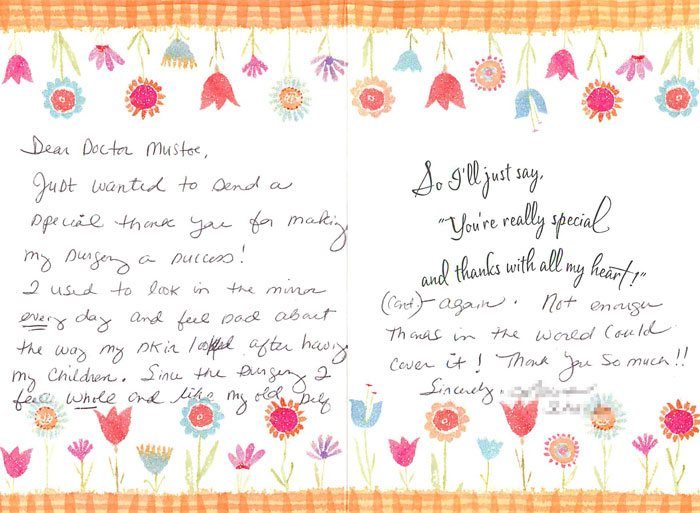 Dear Doctor Mustoe,
Just wanted to send a
special thank you for making
my surgery a success!
I used to look in the mirror
every day and feel sad about
the way my skin looked after having
my children. Since the surgery I
feel whole and like my old self
So I'll just say,
"You're really special
and thanks with all my heart!"
(Cont)- again. Not enough
thanks in the world could
cover it! Thank you so much!!
Sincerely,